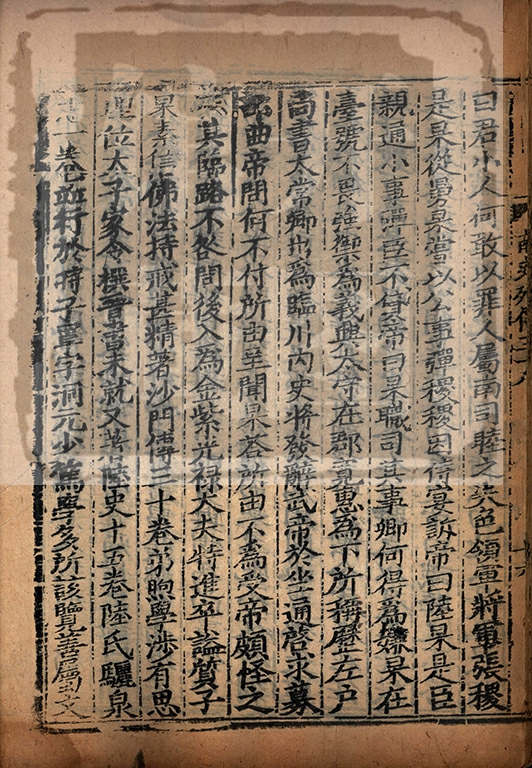 曰君小人何敢以罪人屬南司睦之失色領軍將軍張稷
是杲從舅杲嘗以公事彈稷稷因侍宴訴帝曰陸杲是臣
親通小事彈臣不貸帝曰杲職司其事卿何得為嫌杲在
臺號不畏强禦為義興太守在郡寛惠為下所稱歷左戶
尚書太常卿出為臨川內史將發辭武帝於坐通啓求募
部曲帝問何不付所由呈聞杲荅所由不為受帝頗怪之
以其臨路不咎問後入為金紫光禄大夫特進卒謚質子
杲素信佛法持戒甚精著沙門傳三十卷弟煦學渉有思
理位太子家令撰晉書未就又著陸史十五卷陸氏驪泉
志一卷並行於時子罩字洞元少篤學多所該覽善屬文